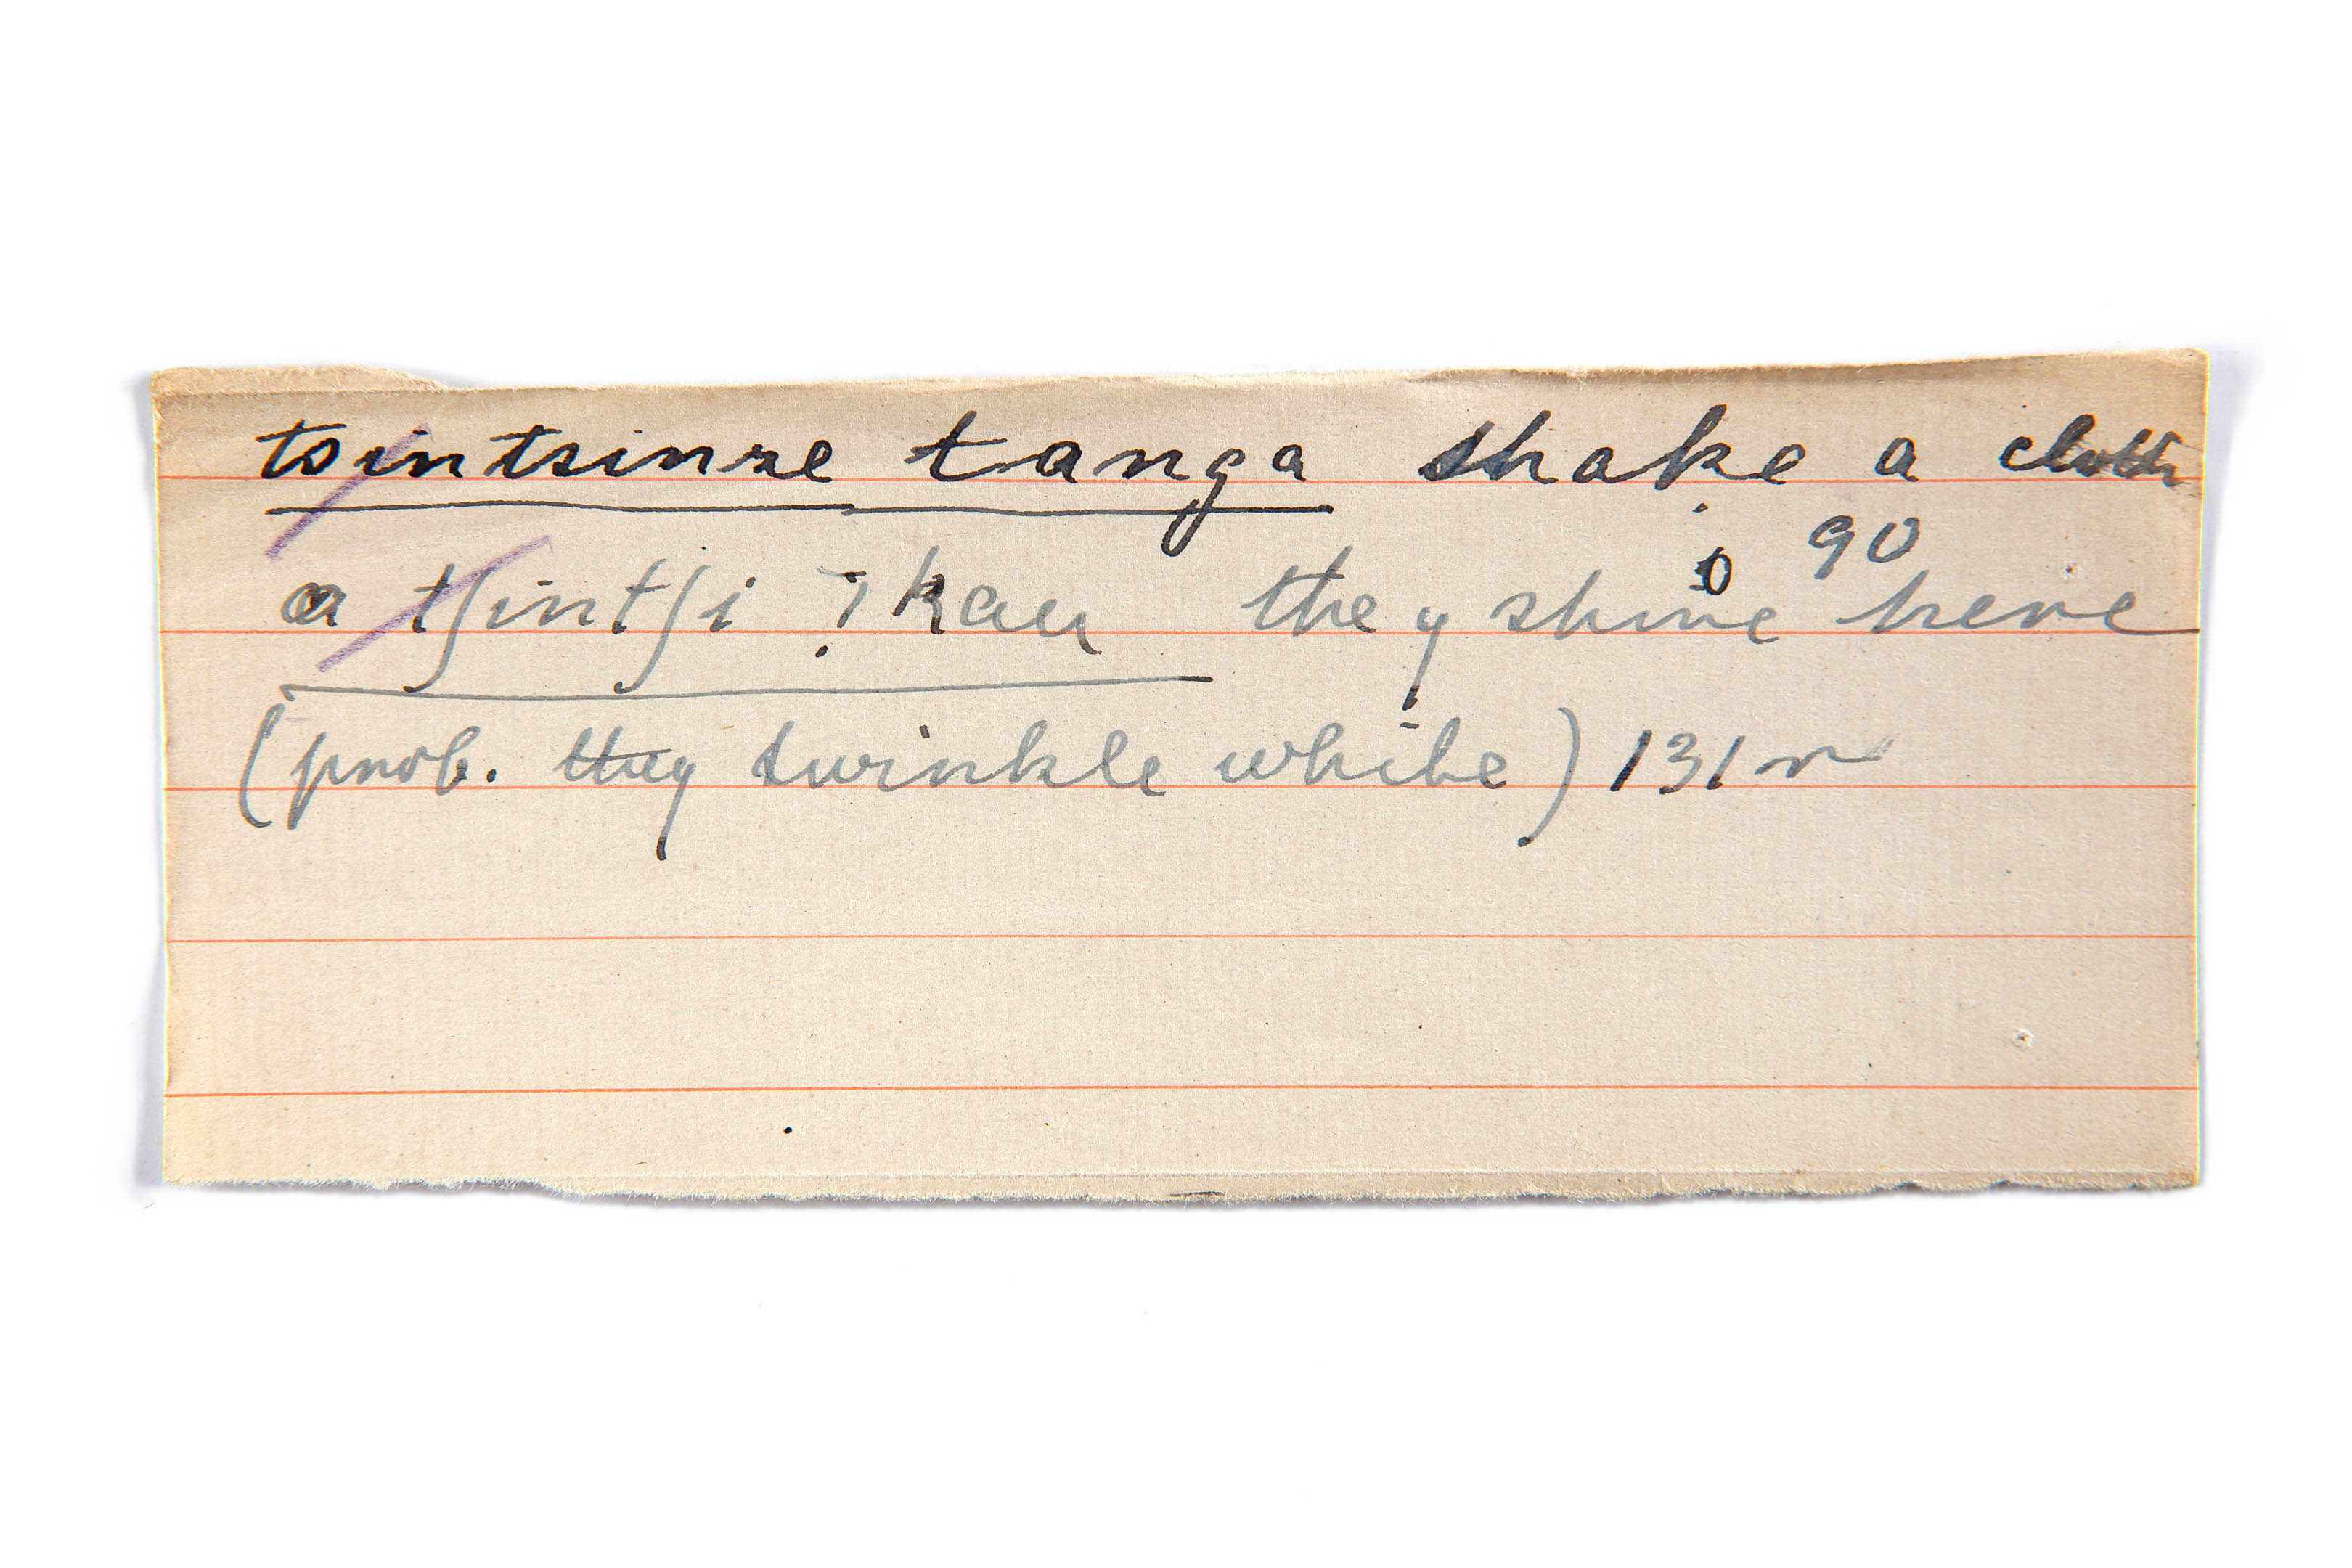 tsintsinze tanga shake a cloth
90
a tʃintʃi ʔkau they shine here
(prob. they twinkle white) 131 r